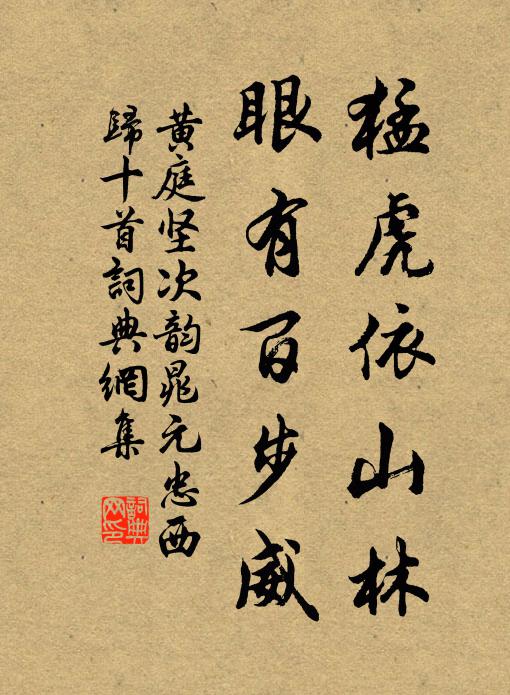 猛虎依山林
眼有百步威
黄庭坚次韵晁元忠西
歸十首詞典網集
詞典
网印